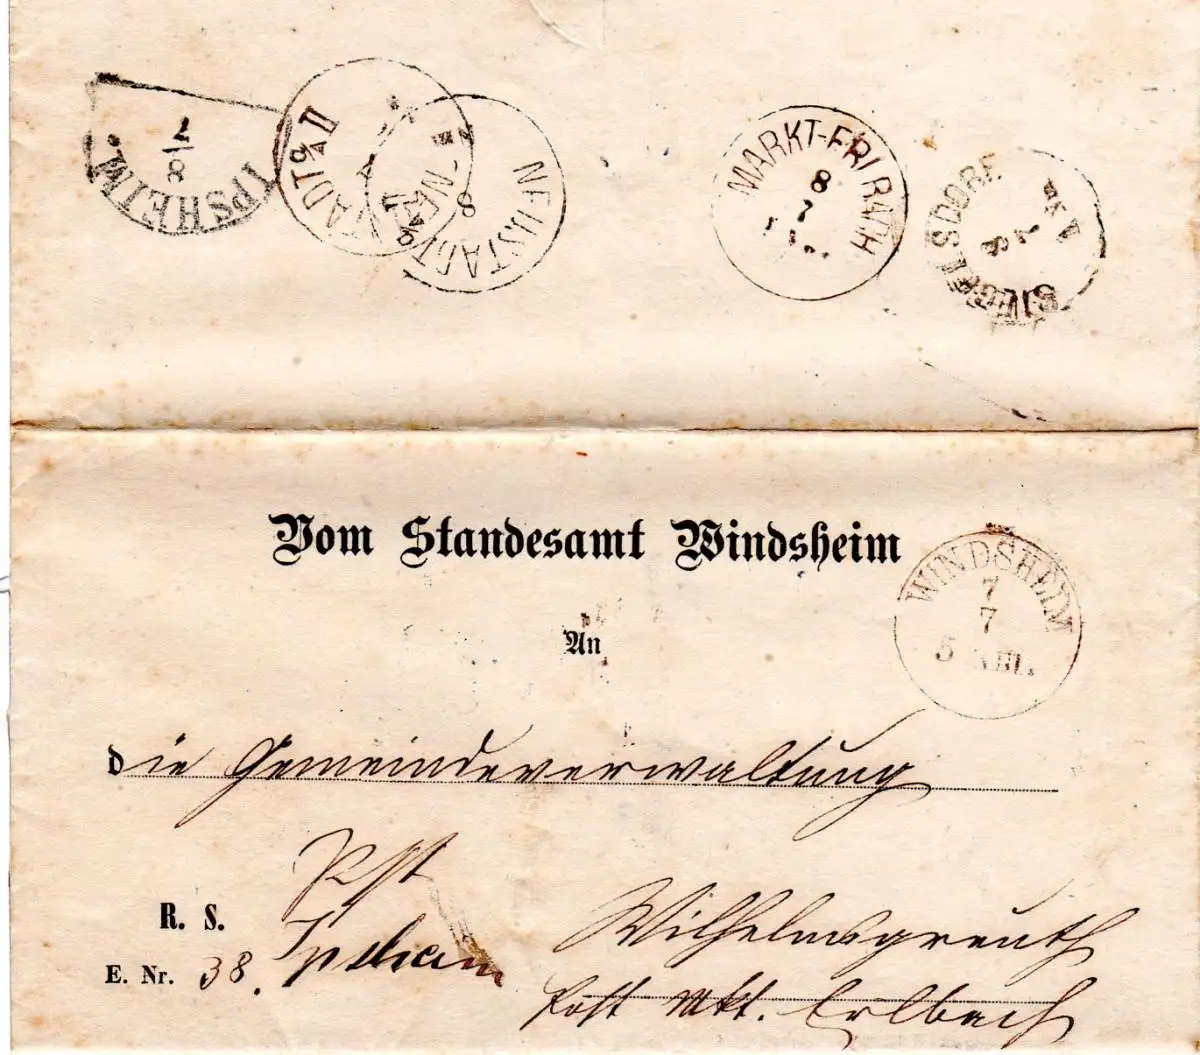 IPSHEIM
7/8
STADT a/A II
NEUSTADT a/A
8
MARKT-ERLBACH
8
7
SIEGELSDORF
8
7
Vom Standesamt Windsheim
WINDSHEIM
7
7
5
An
die Gemeindeverwaltung
Pst
R. S.
Ipsheim
Wilhelmsgreuth
E. Nr. 38.
Post Mkt. Erlbach